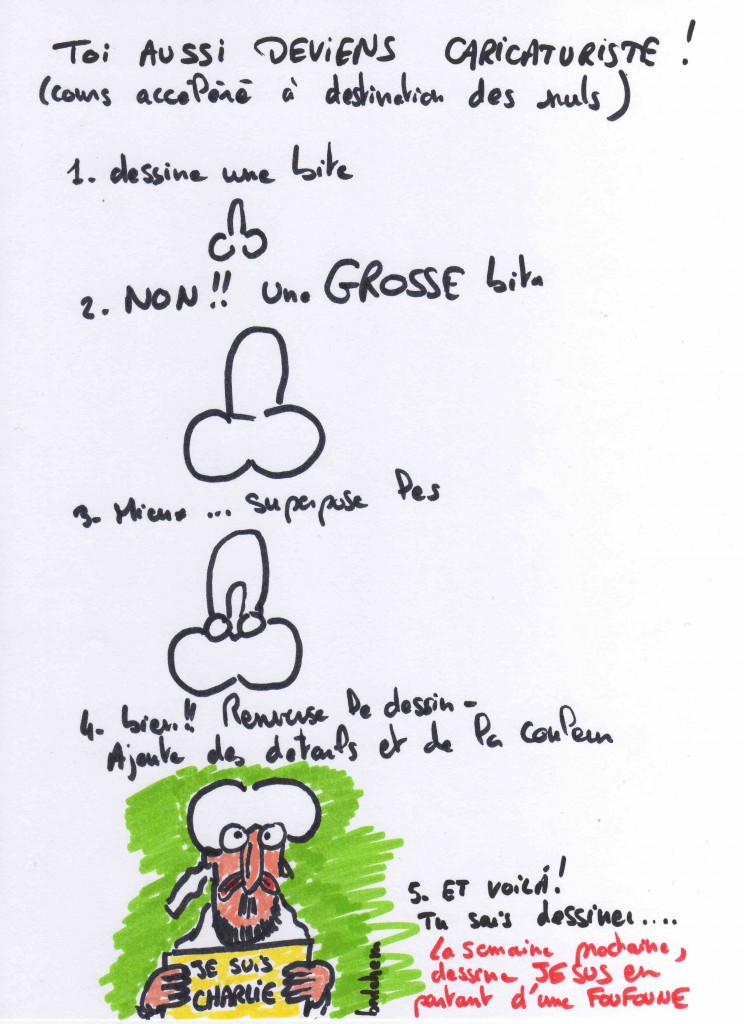 Toi AUSSI DEVIENS CARICATURISTE !
(cours accéléré à destination des nuls)
1. dessine une bite
2. NON !! Une GROSSE bite
3. Mieux ... superpose les
4. bien !! Renverse le dessin -
Ajoute des détails et de la couleur
JE SUIS
CHARLIE
5. ET VOILÀ !
Tu sais dessiner ....
La semaine prochaine,
dessine JESUS en
partant d'une FOUFOUNE